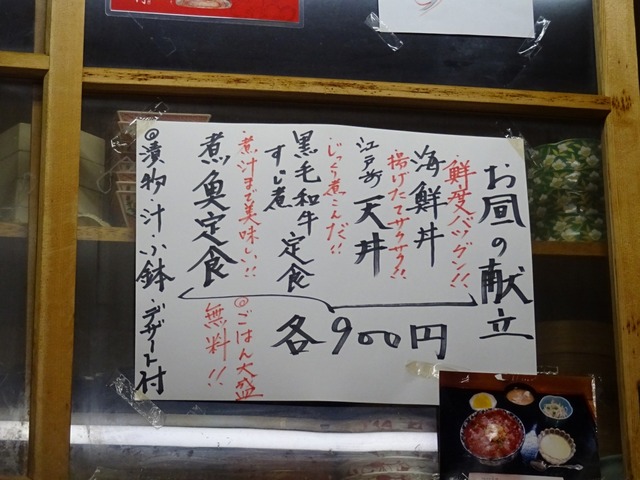 お昼の献立
・鮮度バツグン!!
海鮮丼
・揚げたてサクサク!!
江戸前 天丼
・じっくり煮こんだ!!
黒毛和牛 定食
すじ煮
・煮汁まで美味しい!!
煮魚定食
各900円
◎ごはん大盛
無料!!
◎漬物・汁・小鉢・デザート付